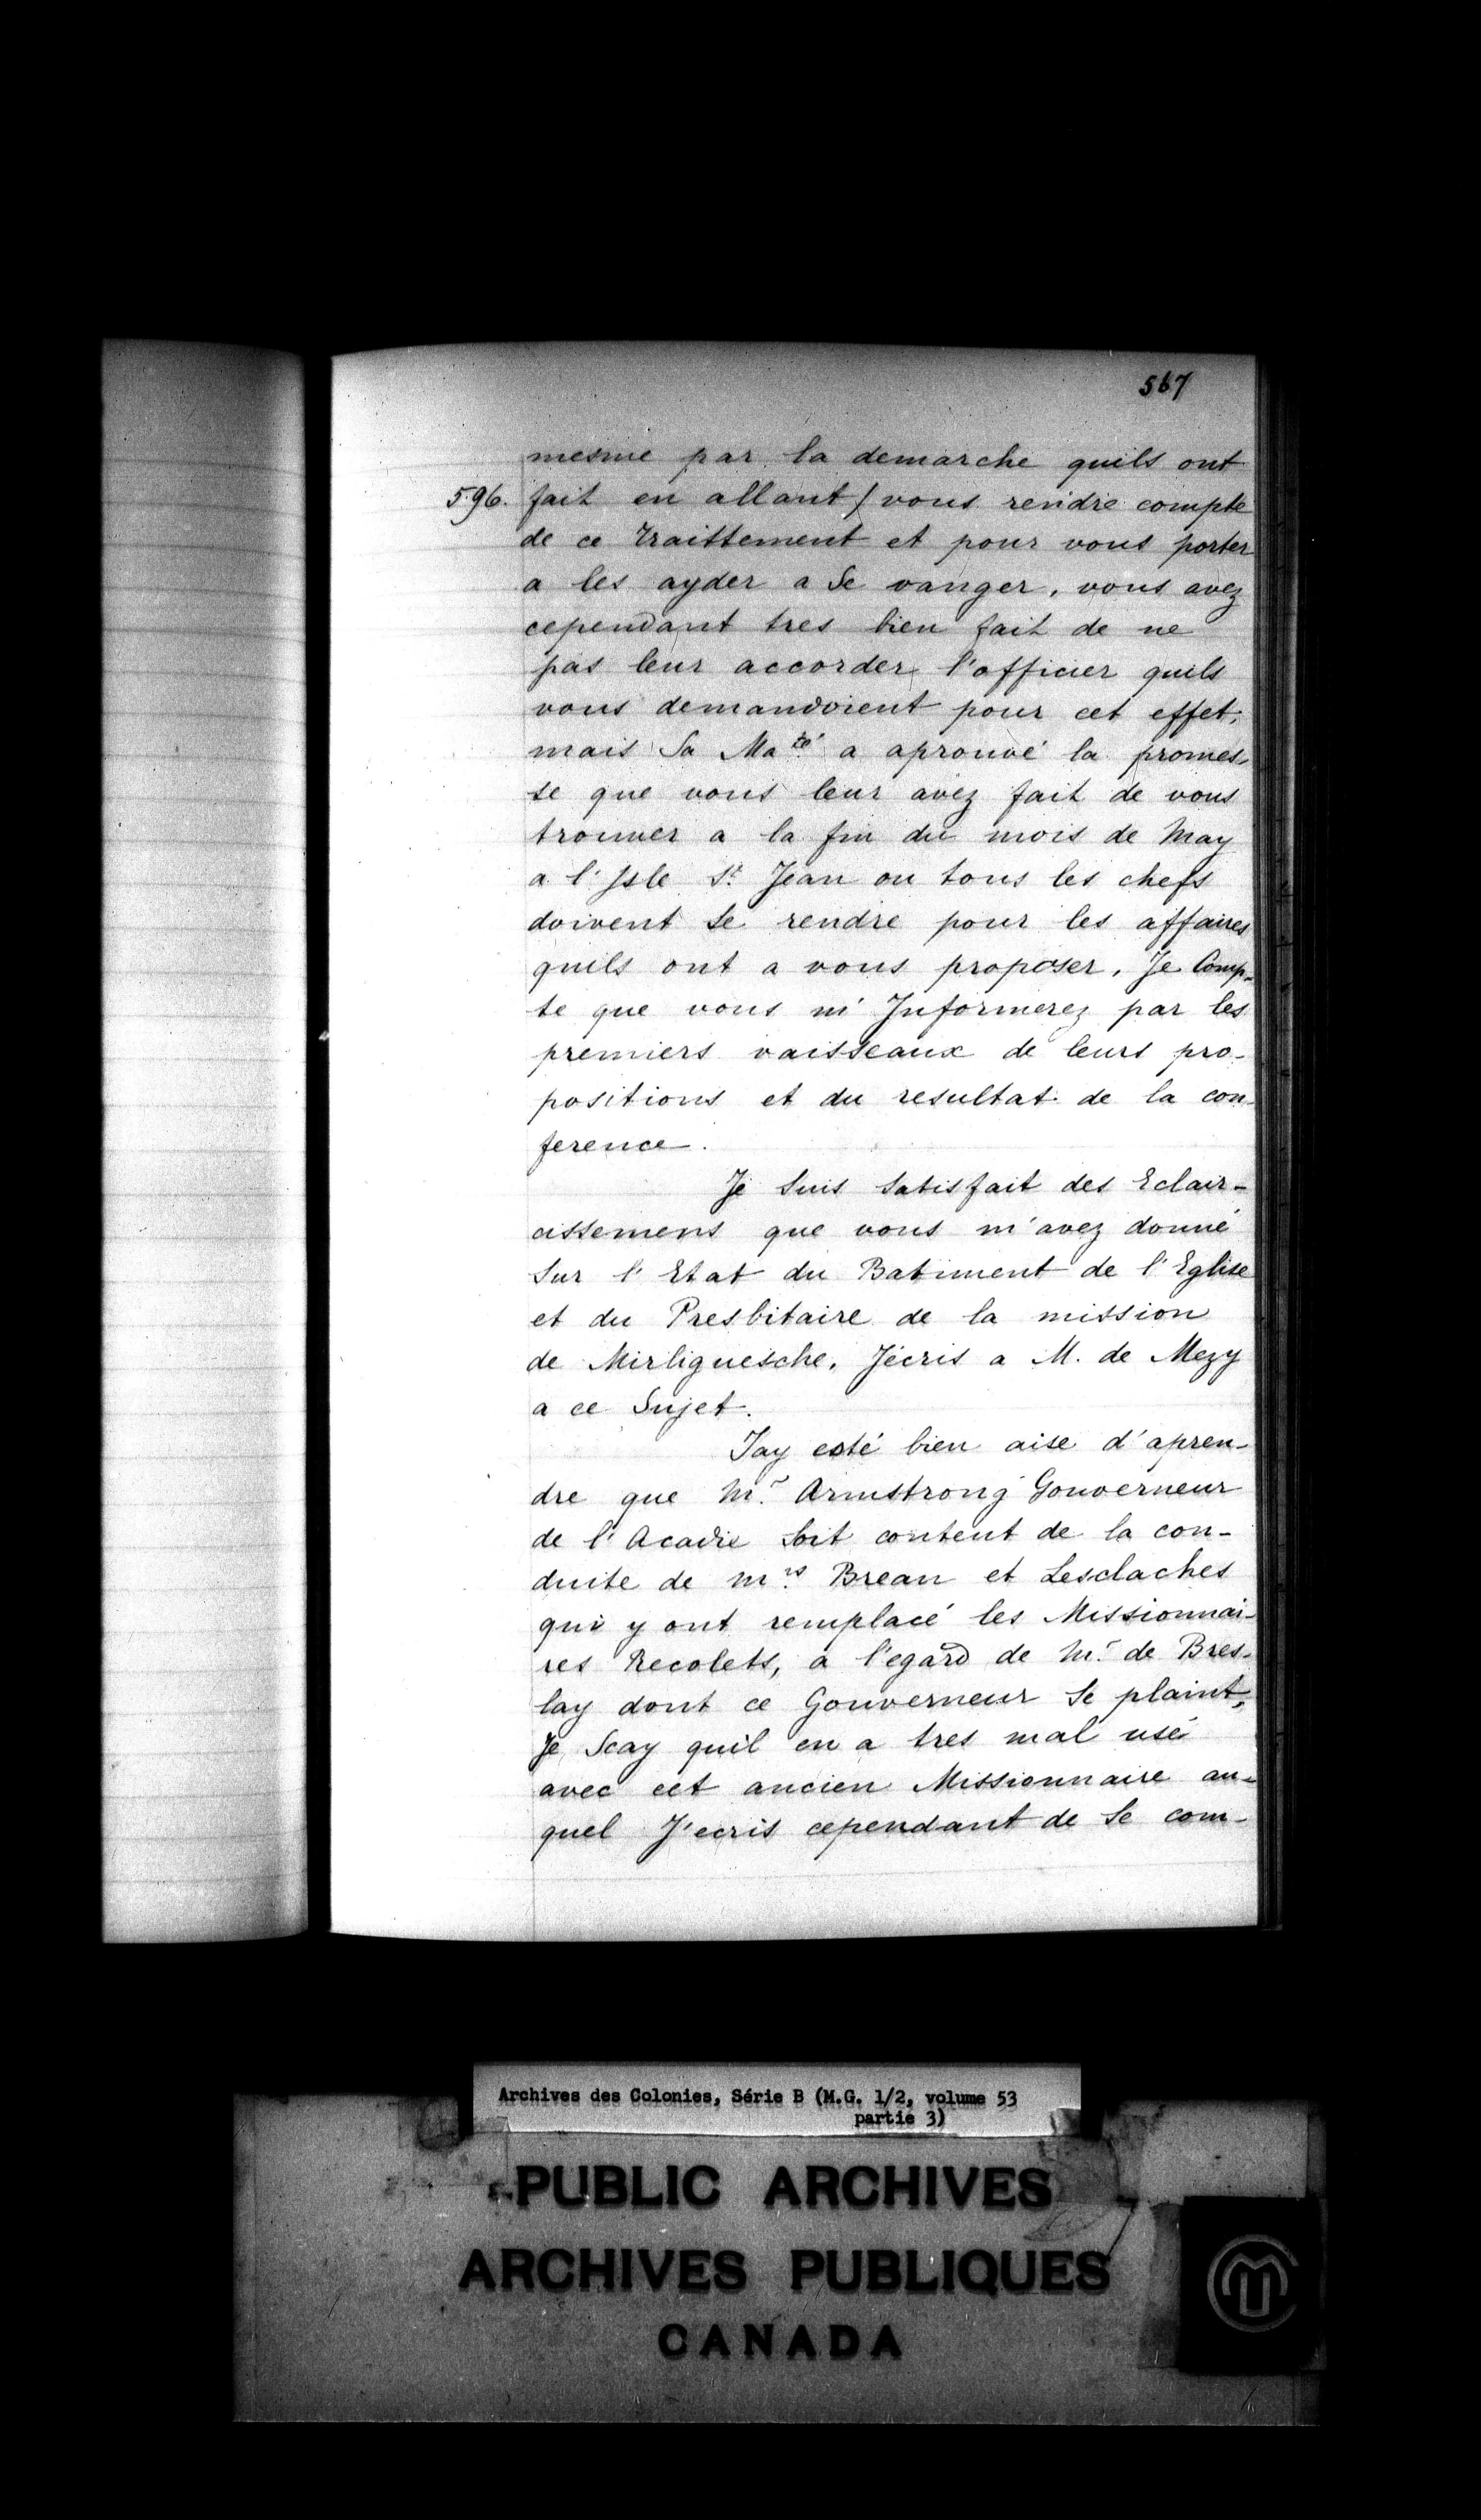 567
mesme par la demarche quils ont
596. fait en allant / vous rendre compte
de ce traittement et pour vous porter
a les ayder a Se vanger, vous avez
cependant tres bien fait de ne
pas leur accorder l'officier quils
vous demandoient pour cet effet,
mais Sa Maté a aprouvé la promes-
se que vous leur avez fait de vous
trouver a la fin du mois de May
a l'Isle St. Jean ou tous les chefs
doivent Se rendre pour les affaires
quils ont a vous proposer, Je Comp-
te que vous m'Informerez par les
premiers vaisseaux de leurs pro-
positions et du resultat de la con-
ference.
Je Suis Satisfait des Eclair-
cissemens que vous m'avez donné
Sur l'Etat du Batiment de l'Eglise
et du Presbitaire de la mission
de Mirliguesche, Jécris a M. de Mezy
a ce Sujet.
Jay esté bien aise d'apren-
dre que Mr. Armstrong Gouverneur
de l'Acadie Soit content de la con-
duite de Mrs. Breau et Lesclaches
qui y ont remplacé les Missionnai-
res Recolets, a l'egard de Mr. de Bres-
lay dont ce Gouverneur Se plaint,
Je Scay quil en a tres mal usé
avec cet ancien Missionnaire au-
quel J'ecris cependant de Se com-
Archives des Colonies, Série B (M.G. 1/2, volume 53
partie 3)
PUBLIC ARCHIVES
ARCHIVES PUBLIQUES
CANADA